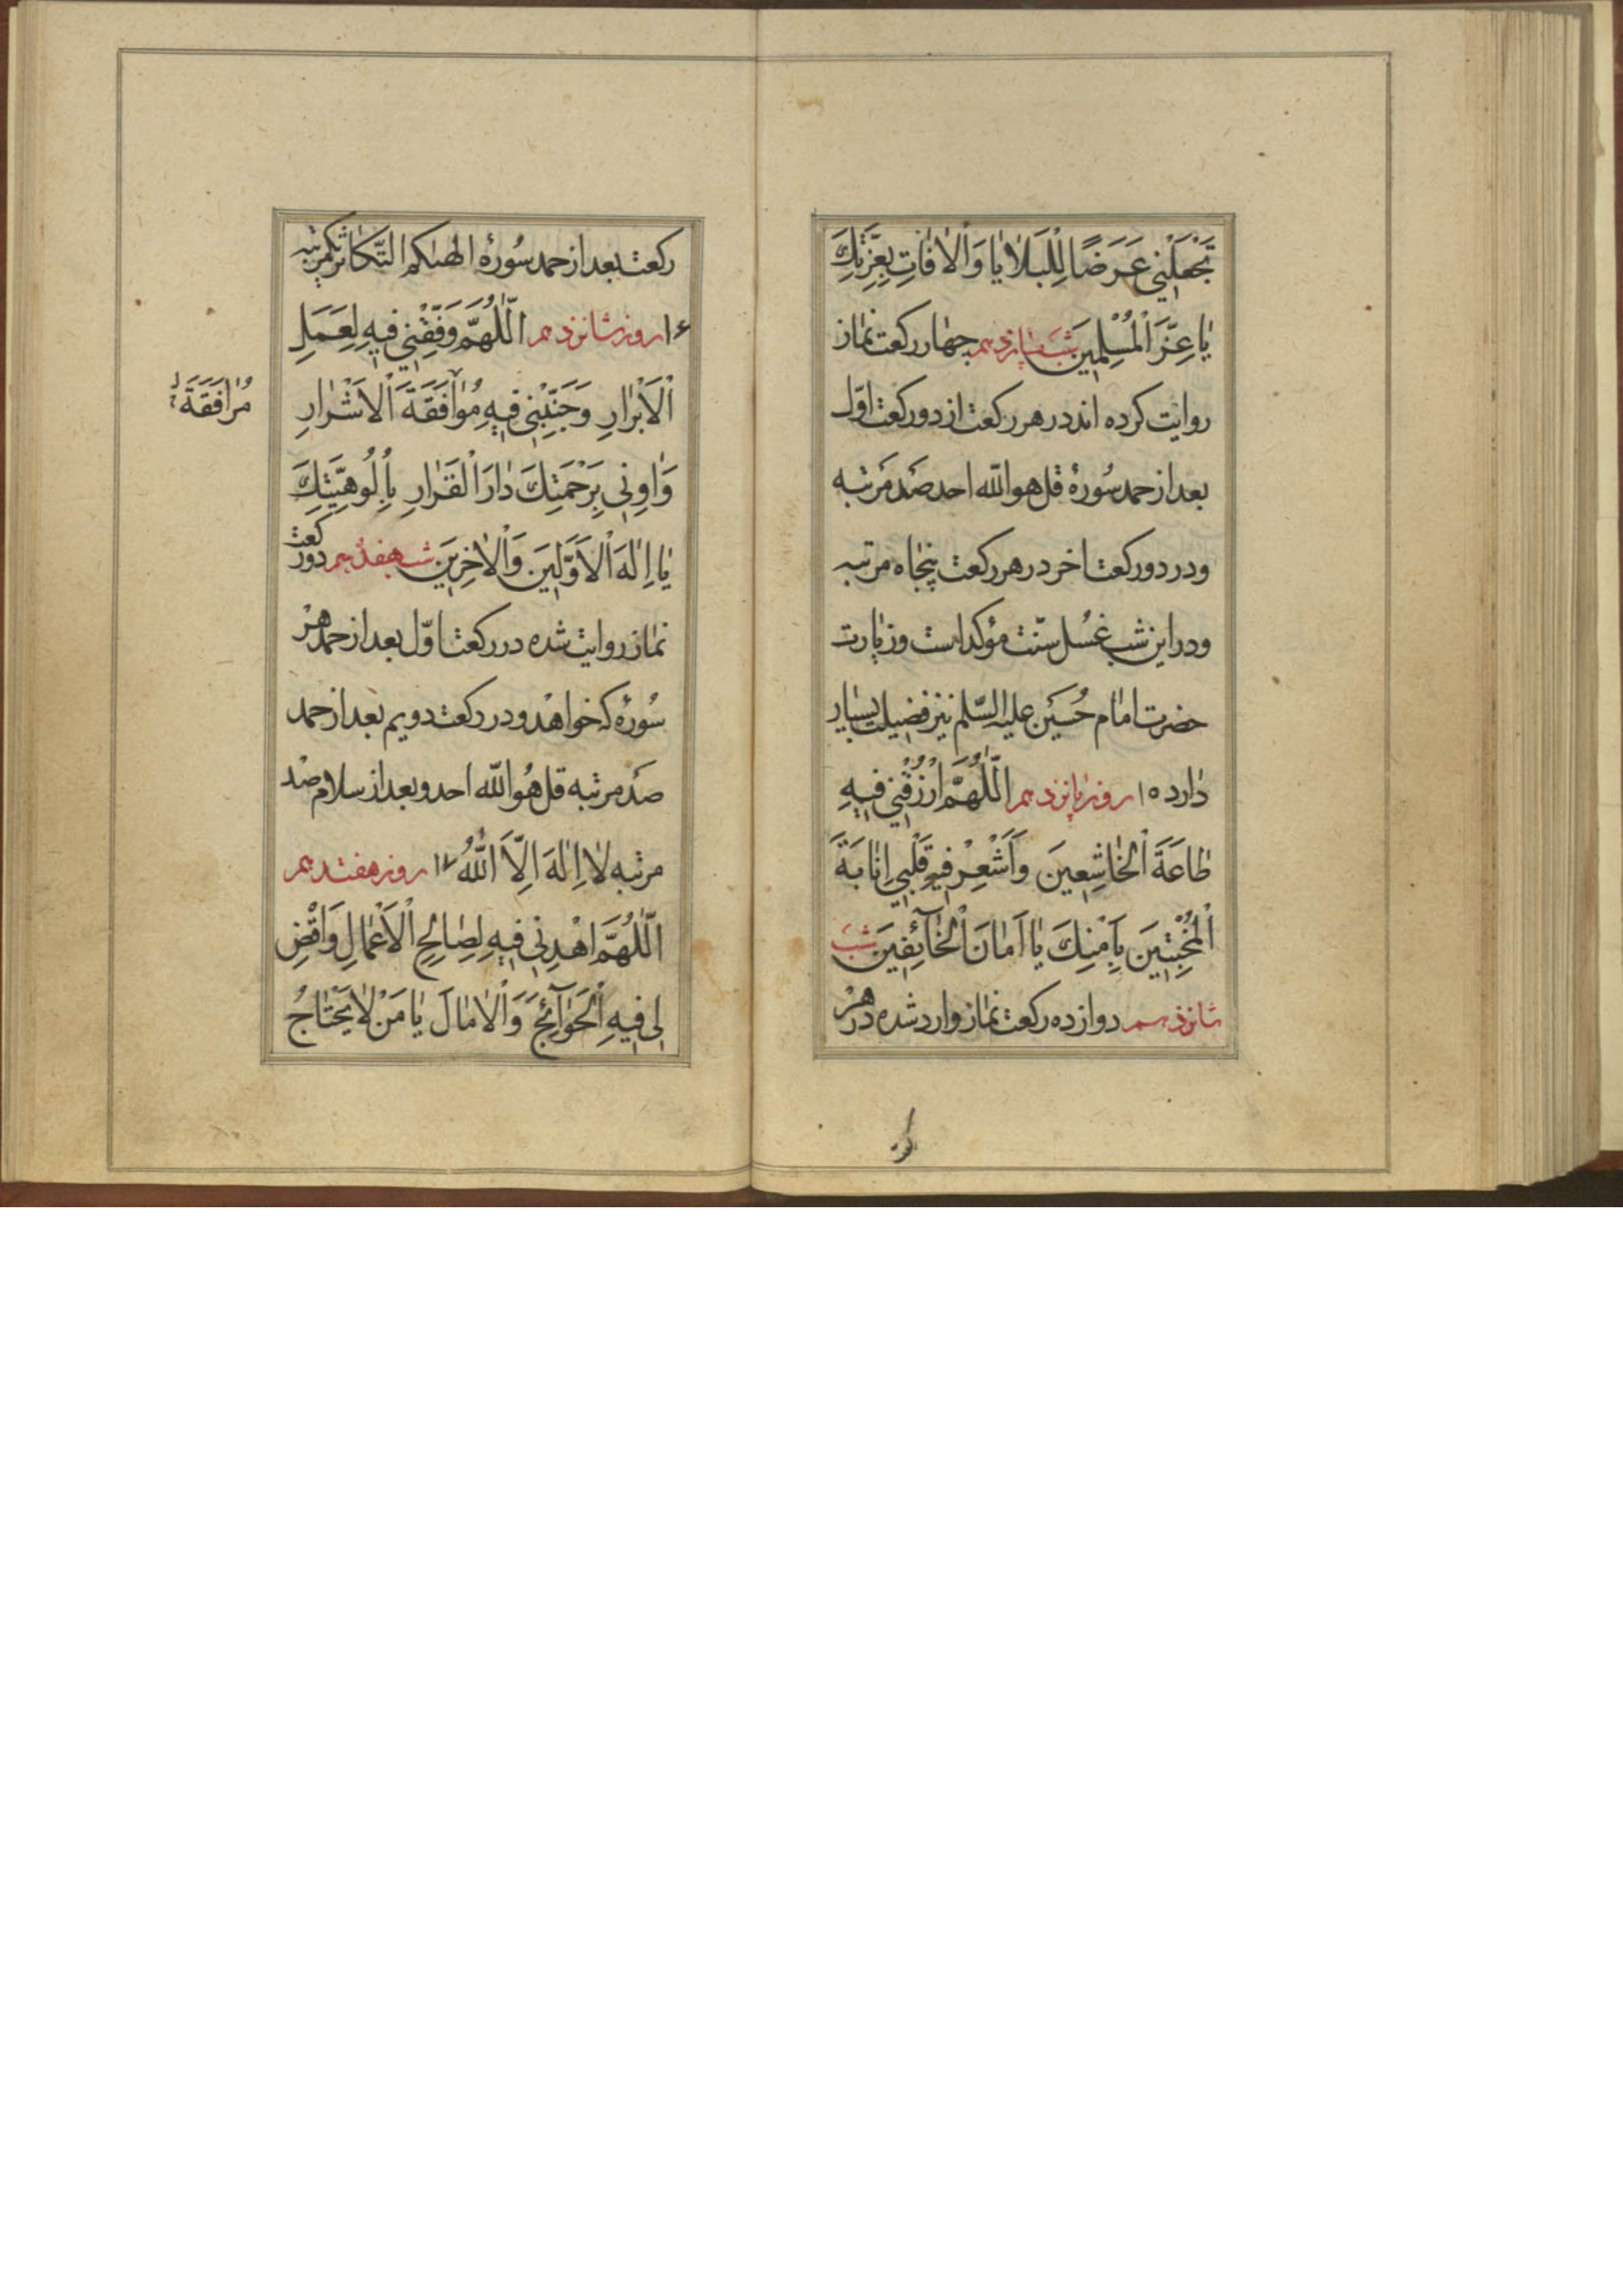 تَجْعَلْنِي عَرَضًا لِلْبَلَايَا وَالْاٰفَاتِ بِعِزَّتِكَ
يَا عِزَّ الْمُسْلِمِينَ شب پانزدهم چهار ركعت نماز
روايت كرده اند در هر ركعت از دو ركعت اوّل
بعد از حمد سُورهٔ قل هو اللّه احد صَد مَرتبه
و در دو ركعت اخر در هر ركعت پنجاه مرتبه
و در اين شب غسُل سنّت مؤكد است و زيارت
حضرت امام حُسَين عليه السّلم نيز فضيلت بسيار
دارد ١٥ روز پانزدهم اَللّٰهُمَّ ارْزُقْنِي فِيهِ
طَاعَةَ الْخَاشِعِينَ وَاَشْعِرْ فِيهِ قَلْبِي اِنَابَةَ
الْمُخْبِتِينَ بِاَمْنِكَ يَا اَمَانَ الْخَآئِفِينَ شب
شانزدهم دوازده ركعت نماز وارد شده در هر
ركعت بعد از حمد سُورهٔ الهىٰكم التّكاثر يكمرتبه
١٤ روز شانزدهم اَللّٰهُمَّ وَفِّقْنِي فِيهِ لِعَمَلِ
الْاَبْرَارِ وَجَنِّبْنِي فِيهِ مُوٰافَقَةَ الْاَشْرَارِ
مُرَافَقَةَ
وَاٰوِنِي بِرَحْمَتِكَ دَارَ الْقَرَارِ بِاُلُوهِيَّتِكَ
يَا اِلٰهَ الْاَوَّلِينَ وَالْاٰخِرِينَ شب هفدهم دو ركعت
نماز روايت شده در ركعت اوّل بعد از حمد هر
سُورهٔ كه خواهد و در ركعت دويم بعد از حمد
صَد مرتبه قل هُو اللّه احد و بعد از سلام صد
مرتبه لا اِلٰهَ اِلَّا اللّٰهُ ١٧ روز هفتدهم
اَللّٰهُمَّ اهْدِنِي فِيهِ لِصَالِحِ الْاَعْمَالِ وَاقْضِ
لِي فِيهِ الْحَوَآئِجَ وَالْاٰمَالَ يَا مَنْ لَا يَحْتَاجُ